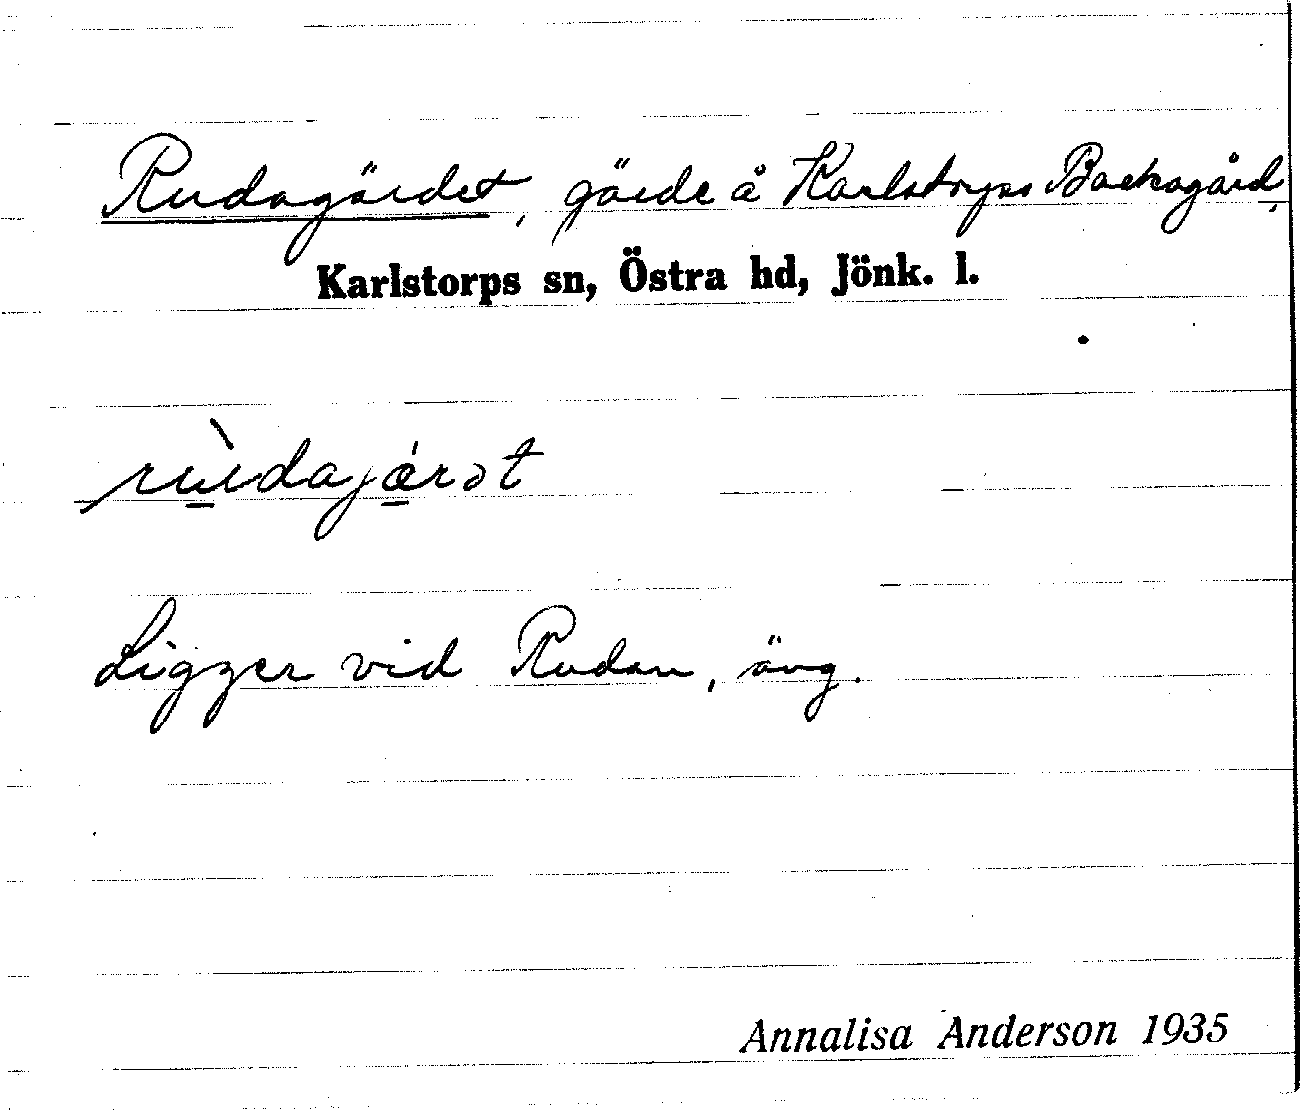 Rudagärdet, gärde å Karlstorps Backagård,
Karlstorps sn, Östra hd, Jönk. l.
rùdajǽrət
Ligger vid Rudan, äng.
Annalisa Anderson 1935